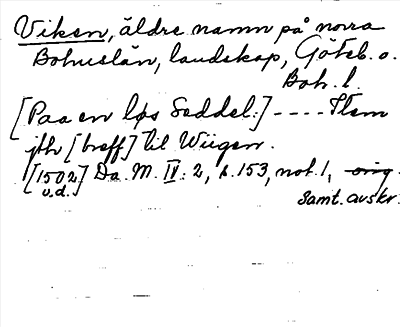 Viken, äldre namn på norra
Bohuslän, landskap, Göteb. o.
Boh. l.
[Paa en løs Seddel:] ---- Item
jth [breff] til Wiigen.
[1502] Da. M. IV: 2, s. 153, not. 1, orig.
u.d. Samt. avskr.